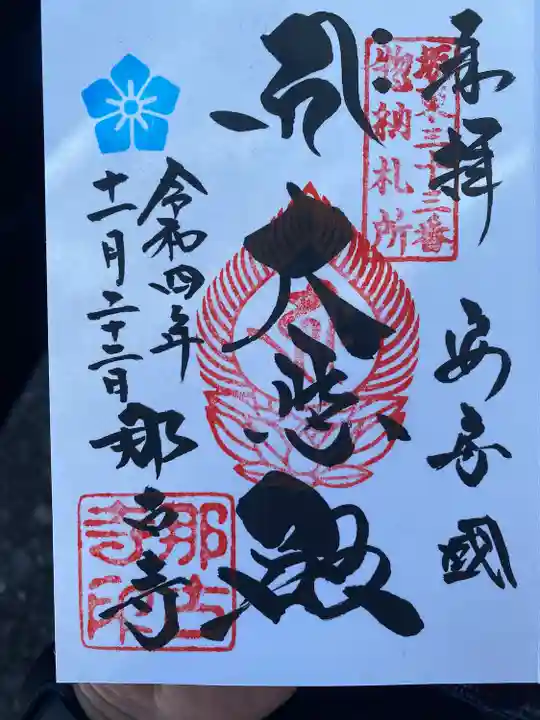 奉拝
安房國
坂東三十三番
惣納札所
大悲殿
令和四年
十一月二十二日
那古寺
那古寺印